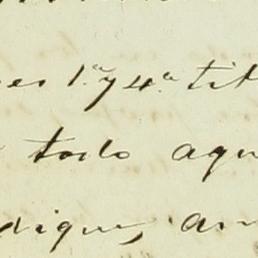 es 1.ª y 4.ª tit
todo aqu
dique, an